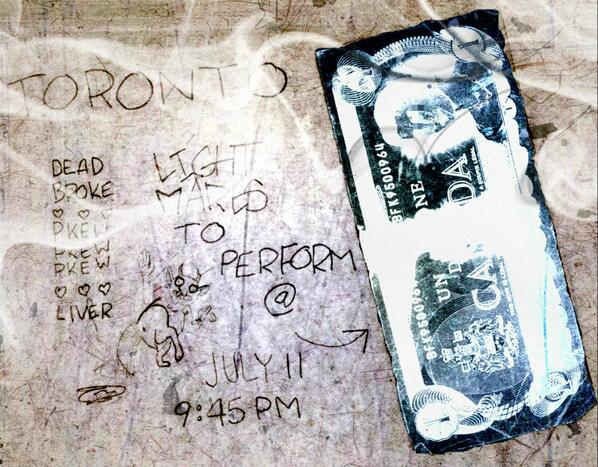 TORONTO
DEAD
BROKE
♡ ♡ ♡
PKEW
PKEW
PKEW
♡ ♡ ♡
LIVER
LIGHT
MAKES
TO
PERFORM
@
JULY 11
9:45PM
BFK9500964
ONE
UN
CANADA
1